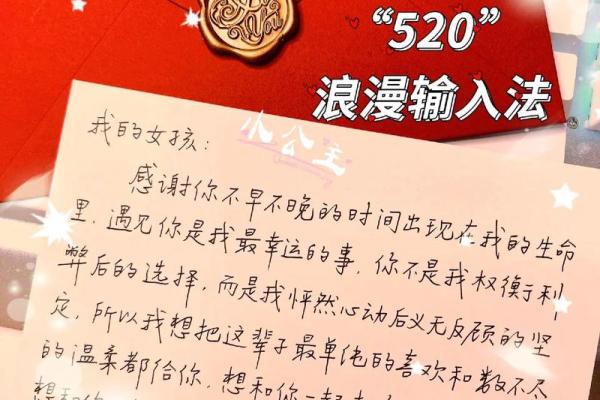 “520”
浪漫输入法
小公主
我的女孩：
感谢你不早不晚的时间出现在我的生命
里，遇见你是我最幸运的事，你不是我权衡利
弊后的选择，而是我怦然心动后义无反顾的坚
定，所以我想把这辈子最单纯的喜欢和数不尽
的温柔都给你，想和你一起
想和你